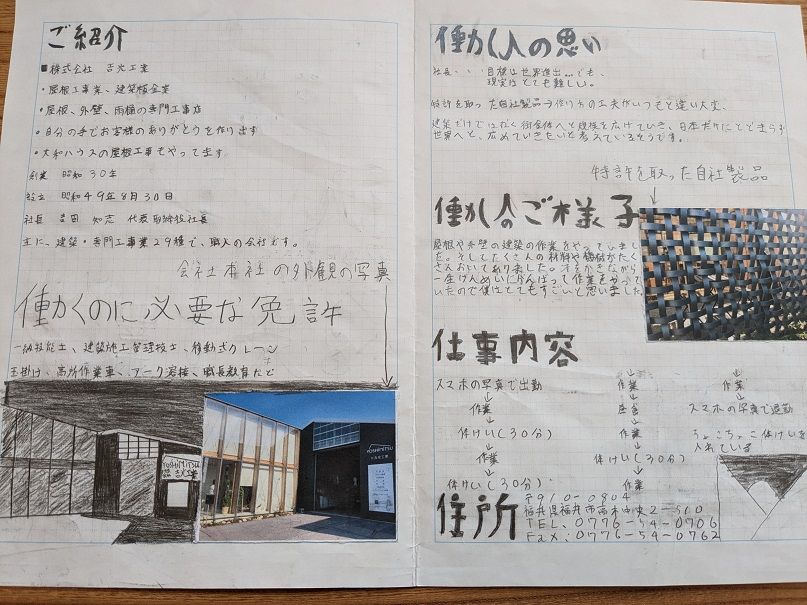 ご紹介
■株式会社 吉光工業
・屋根工事業、建築板金業
・屋根、外壁、雨樋の専門工事店
・自分の手でお客様のありがとうを作り出す
・大和ハウスの屋根工事もやって出す
創業 昭和30年
設立 昭和49年8月30日
社長 吉田 知志 代表取締役社長
主に、建築・専門工事業29種で、職人の会社です。
会社本社の外観の写真
働くのに必要な免許
一級技能士、建築施工管理技士、移動式クレーン
玉掛け、高所作業車、アーク溶接、職長教育など
YOSHIMITSU
吉光工業
YOSHIMITSU
働く人の思い
社長・・目標は世界進出…でも、
現実はとても難しい。
特許を取った自社製品→作り方の工夫がいつもと違い大変。
建築だけではなく街全体へと規模を広げていき、日本だけにとどまらず
世界へと、広めていきたいと考えているそうです。
特許を取った自社製品
働く人のご様子
屋根や外壁の建築の作業をやっていまし
た。そしてたくさんの材料や機械がたく
さんおいてありました。汗をかきながら
一生けんめいにがんばって作業をやって
いたので僕はとてもすごいと思いました
仕事内容
スマホの写真で出勤
↓
作業
↓
休けい(30分)
↓
作業
↓
休けい(30分)
作業
↓
昼食
↓
作業
↓
休けい(30分)
↓
作業
↓
作業
↓
スマホの写真で退勤
ちょこちょこ休けいを
入れている
住所
〒910-0804
福井県福井市高木中央2-510
TEL、0776-54-0706
Fax、0776-54-0762